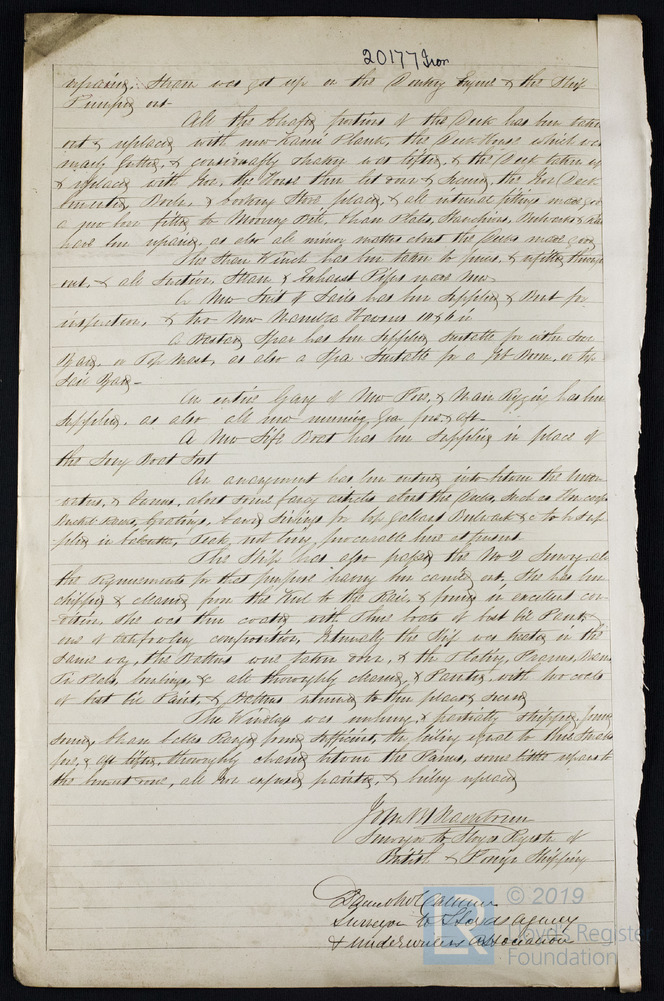 20177 Iron
repairing. Steam was got up on the Donkey Engine & the Ship
Pumped out
All the chafed portions of the Deck has been taken
out & replaced with new Kauri Plank, the Deck House which was
much gutted, & considerably shaken was lifted, & the Deck taken up
& replaced with Iron, the House then let down & secured, the Iron Deck
cemented, Doors, & Cooking Stove placed, & all internal fittings made good
a new fitted to Mooring Bitt, Chain Plates, Stanchions, Bulwarks &
have been repaired, as also all minor matters about the Decks made good
The Steam Winch has been taken to pieces, & refitted through
out, & all Suction, Steam & Exhaust Pipes made New
A New Suit of Sails has been supplied & Bent for
inspection, & two New Manilla Hawsers 10 & 6 in
A Spar has been supplied suitable for either Lower
Yard, or Top Mast, as also a Spar suitable for a Jib Boom, or Top
Sail Yard
An entire Gang of New Fore, & Main Rigging has been
supplied, as also all new running gear fore & aft
A New Life Boat has been supplied in place of
the Boat lost
An arrangement has been entered into between the Under
writers, & Owners, about some fancy articles about the Decks, such as
Gratings, for top gallant Bulwark &c to be sup
plied in Calcutta, Teak, not being procurable here at present
The Ship has also passed the No 2 Survey all
the requirements for that purpose having been carried out, She has been
chipped & cleaned from the Keel to the Rail, & found in excellent con
dition, she was then coated with three coats of best oil Paint &
one of antifouling composition, Internally the Ship was treated in the
same way, the Battens were taken down, & the Plating, Frames, Beams
Tie Plates, &c all thoroughly cleaned, & Painted with two coats
of best oil Paint, & Battens returned to their places & secured
The Windlass was unhung, & partially stripped, found
sound, Chain Cables Ranged found sufficient, the ceiling equal to three Strakes
fore, & aft lifted, thoroughly cleaned between the Frames, some little repairs to
the cement done, all Iron exposed painted, & ceiling replaced
Surveyor to Lloyds Register of
British & Foreign Shipping
Surveyor to Lloyds Agency
& Underwriters Association
LR
© 2019
Lloyd's Register
Foundation